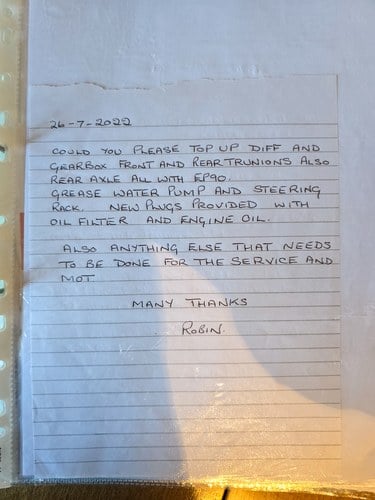 26-7-2022
COULD YOU PLEASE TOP UP DIFF AND
GEARBOX. FRONT AND REAR TRUNIONS ALSO
REAR AXLE ALL WITH EP90.
GREASE WATER PUMP AND STEERING
RACK. NEW PLUGS PROVIDED WITH
OIL FILTER AND ENGINE OIL.
ALSO ANYTHING ELSE THAT NEEDS
TO BE DONE FOR THE SERVICE AND
MOT
MANY THANKS
ROBIN.